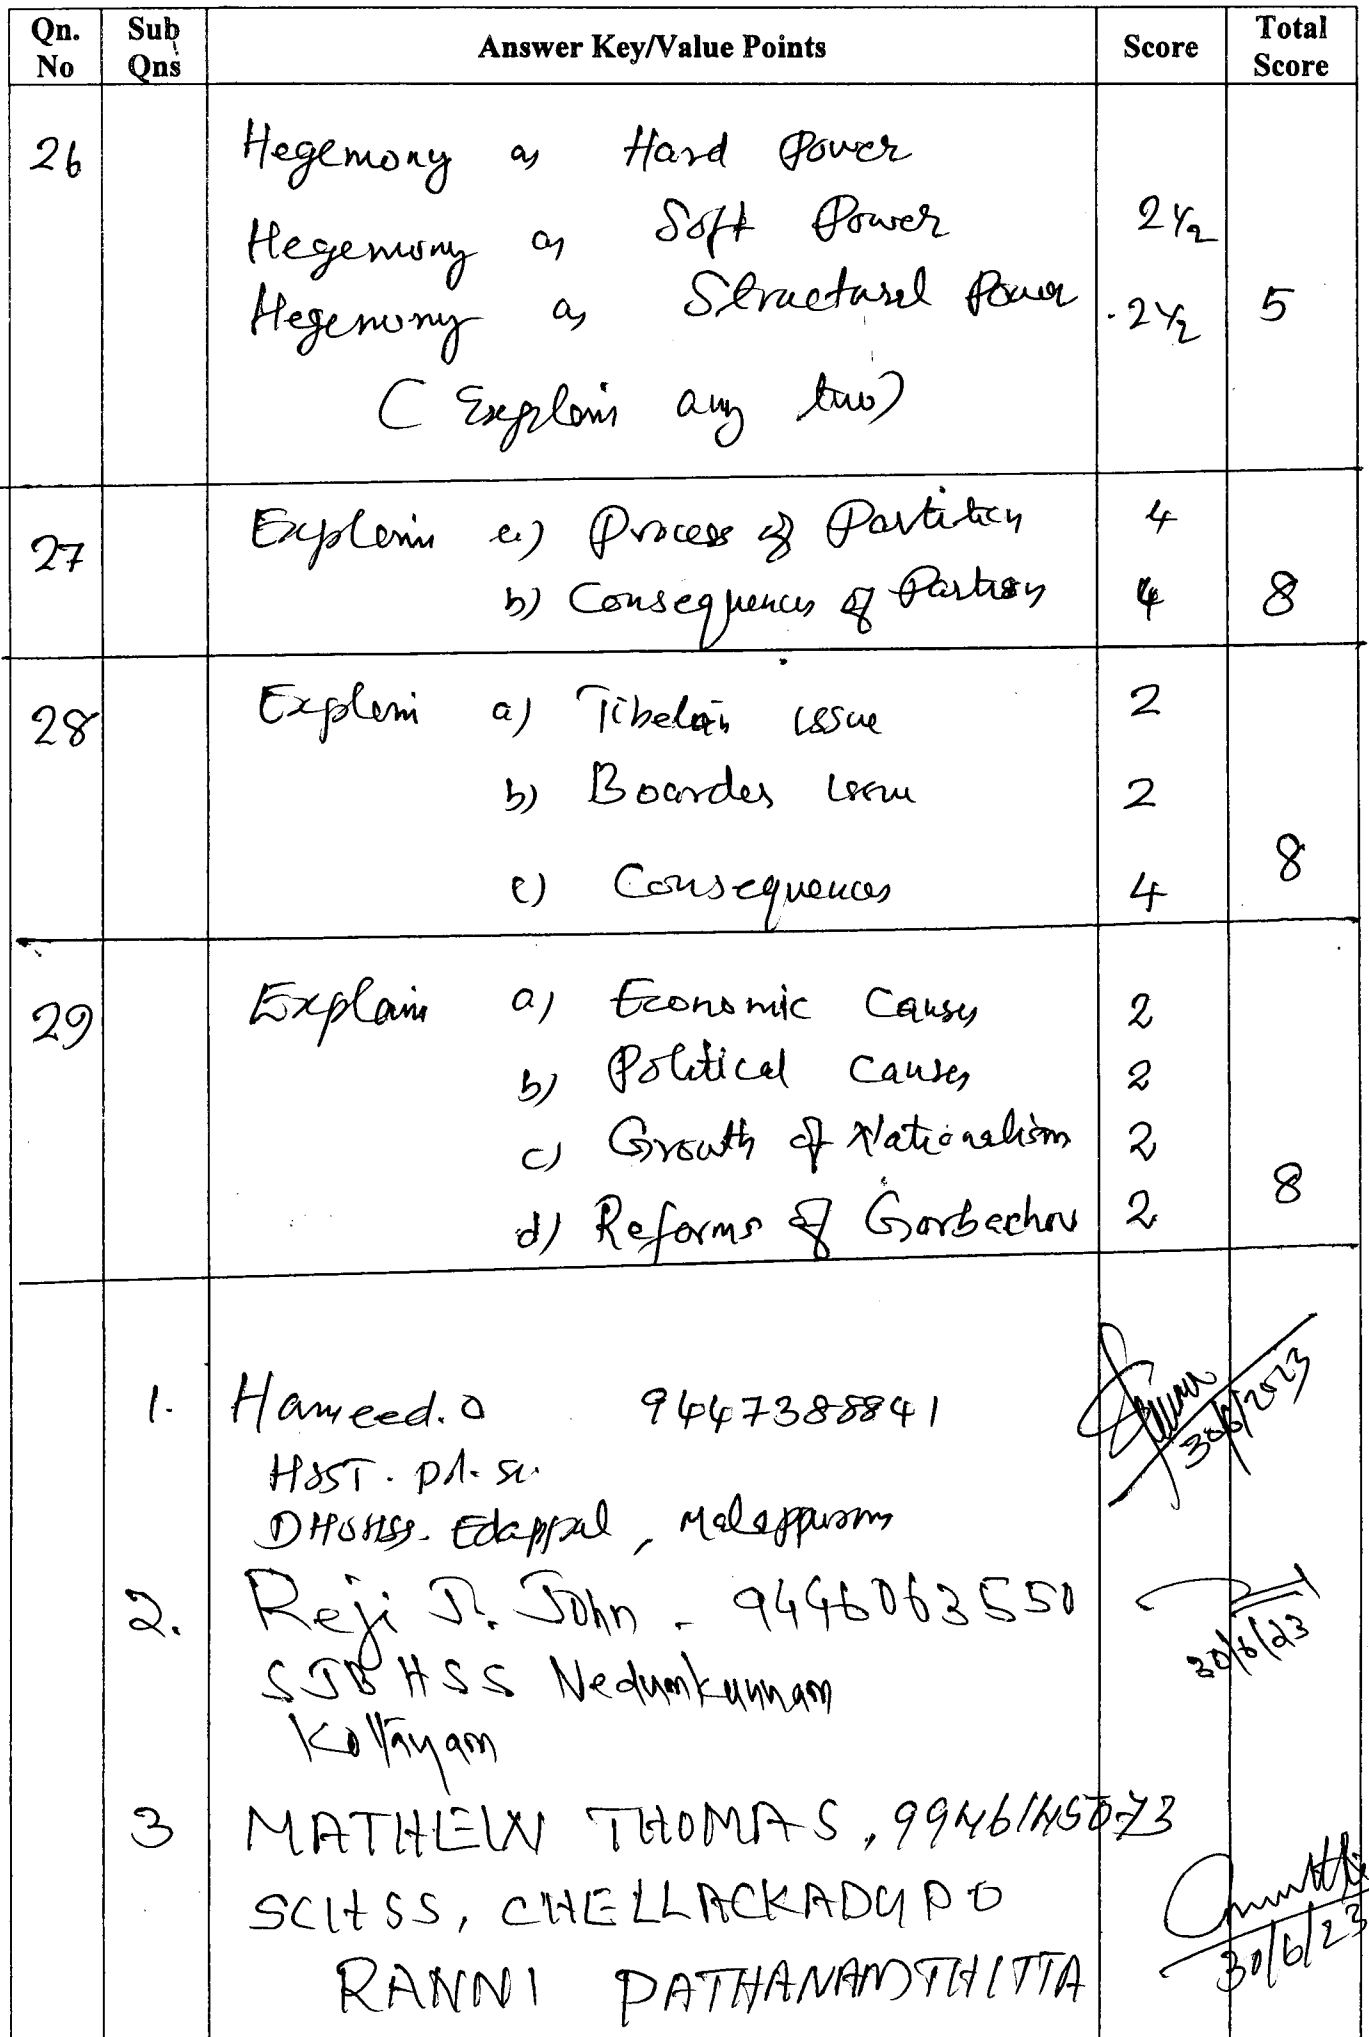 Qn. No Sub Qns Answer Key/Value Points Score Total Score
26 Hegemony as Hard Power
Hegemony as Soft Power 2½
Hegemony as Structural Power 2½ 5
(Explain any two)
27 Explain a) Process of Partition 4
b) Consequences of Partition 4 8
28 Explain a) Tibetan issue 2
b) Boarder issue 2
c) Consequences 4 8
29 Explain a) Economic Causes 2
b) Political Causes 2
c) Growth of Nationalism 2
d) Reforms of Gorbachov 2 8
1. Hameed. O 9447388841
HSST. Pol. Sc. 30/6/2023
DHOHSS. Edappal, Malappuram
2. Reji P. John - 9446063550
SJB HSS Nedumkunnam 30/6/23
Kottayam
3 MATHEW THOMAS, 9946145073
SCHSS, CHELLACKADU PO
RANNI PATHANAMTHITTA 30/6/23